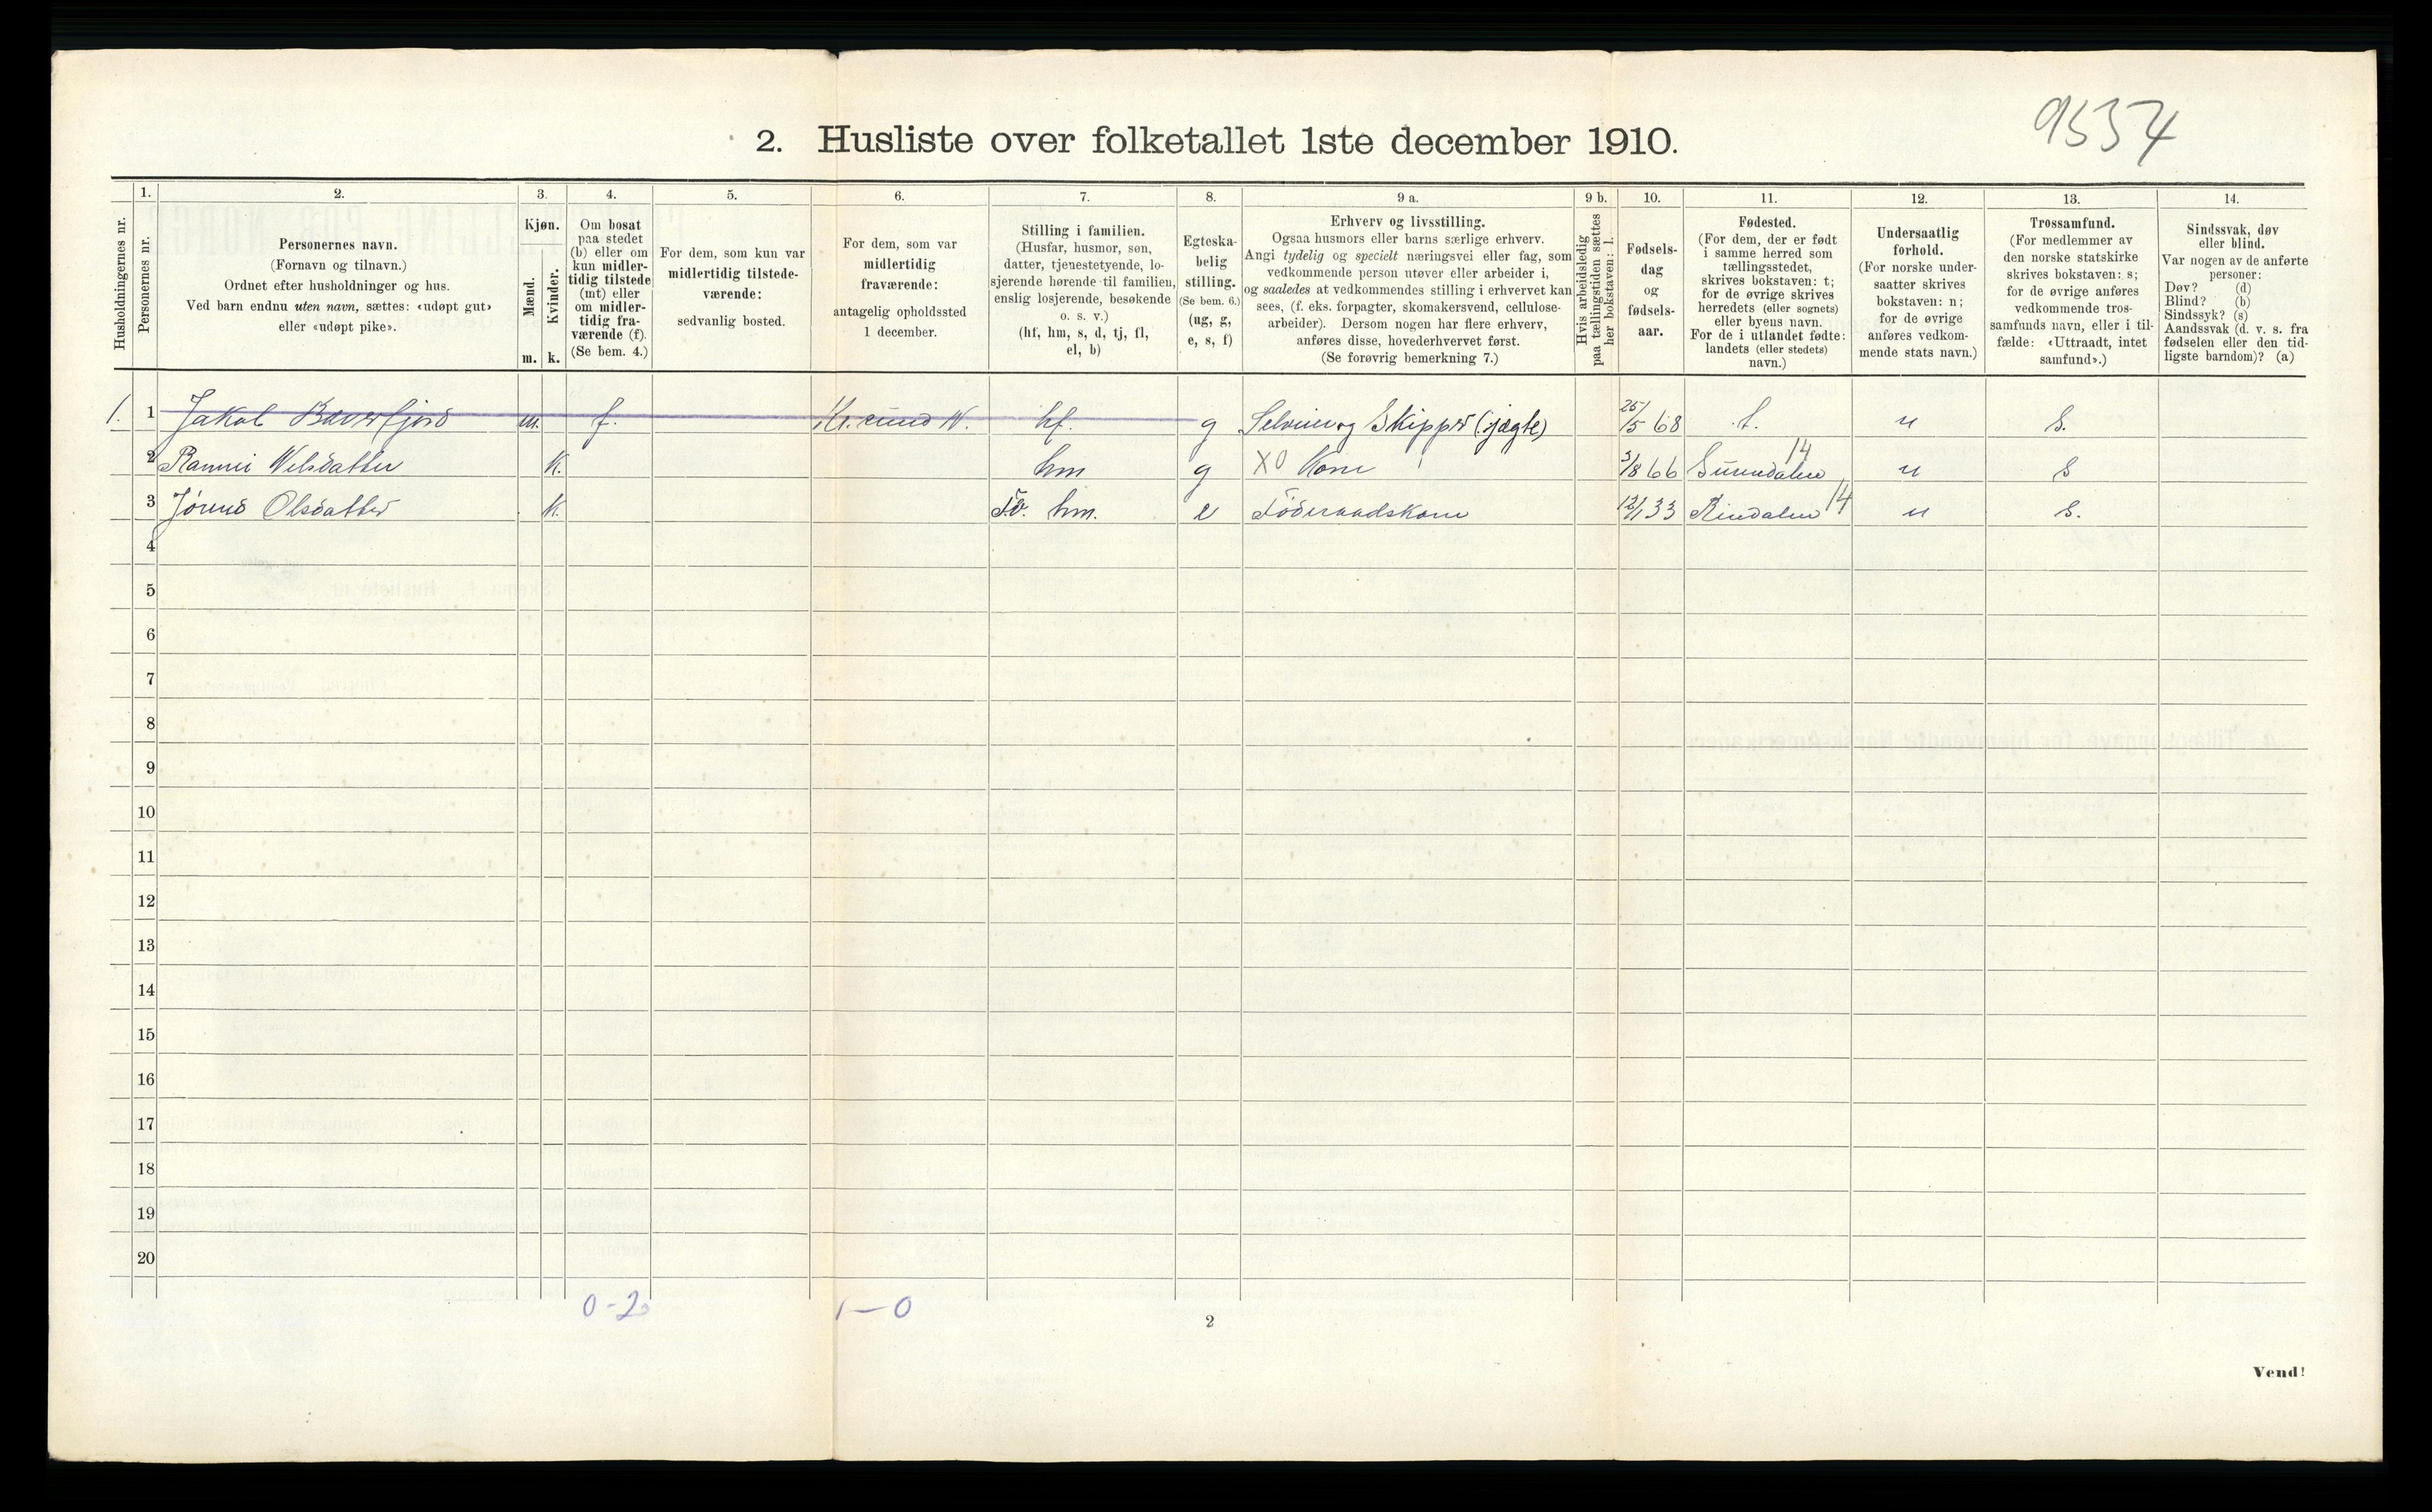 9537
2. Husliste over folketallet 1ste december 1910.
Husholdningernes nr.
1.
Personernes nr.
2.
Personernes navn.
(Fornavn og tilnavn.)
Ordnet efter husholdninger og hus.
Ved barn endnu uten navn, sættes: «udøpt gut»
eller «udøpt pike».
3.
Kjøn.
Mænd.
Kvinder.
m. k.
4.
Om bosat
paa stedet
(b) eller om
kun midler-
tidig tilstede
(mt) eller
om midler-
tidig fra-
værende (f).
(Se bem. 4.)
5.
For dem, som kun var
midlertidig tilstede-
værende:
sedvanlig bosted.
6.
For dem, som var
midlertidig
fraværende:
antagelig opholdssted
1 december.
7.
Stilling i familien.
(Husfar, husmor, søn,
datter, tjenestetyende, lo-
sjerende hørende til familien,
enslig losjerende, besøkende
o. s. v.)
(hf, hm, s, d, tj, fl,
el, b)
8.
Egteska-
belig
stilling.
(Se bem. 6.)
(ug, g,
e, s, f)
9 a.
Erhverv og livsstilling.
Ogsaa husmors eller barns særlige erhverv.
Angi tydelig og specielt næringsvei eller fag, som
vedkommende person utøver eller arbeider i,
og saaledes at vedkommendes stilling i erhvervet kan
sees, (f. eks. forpagter, skomakersvend, cellulose-
arbeider). Dersom nogen har flere erhverv,
anføres disse, hovederhvervet først.
(Se forøvrig bemerkning 7.)
9 b.
Hvis arbeidsledig
paa tællingstiden sættes
her bokstaven: l.
10.
Fødsels-
dag
og
fødsels-
aar.
11.
Fødested.
(For dem, der er født
i samme herred som
tællingsstedet,
skrives bokstaven: t;
for de øvrige skrives
herredets (eller sognets)
eller byens navn.
For de i utlandet fødte:
landets (eller stedets)
navn.)
12.
Undersaatlig
forhold.
(For norske under-
saatter skrives
bokstaven: n;
for de øvrige
anføres vedkom-
mende stats navn.)
13.
Trossamfund.
(For medlemmer av
den norske statskirke
skrives bokstaven: s;
for de øvrige anføres
vedkommende tros-
samfunds navn, eller i til-
fælde: «Uttraadt, intet
samfund».)
14.
Sindssvak, døv
eller blind.
Var nogen av de anførte
personer:
Døv? (d)
Blind? (b)
Sindssyk? (s)
Aandssvak (d. v. s. fra
fødselen eller den tid-
ligste barndom)? (a)
1. 1 Jakob Bæverfjord m. f. Kr.sund N. hf. g Selveier og Skipper (jægte) 25/5 68 t. n S.
2 Nilsdatter k. hm g X0 Kone 3/8 66 Surendalen 14 n S
3 Olsdatter k. Fø. hm. e Föderaadskone 12/1 33 Rindalen 14 n S.
4
5
6
7
8
9
10
11
12
13
14
15
16
17
18
19
20
0-2 1-0
2
Vend!